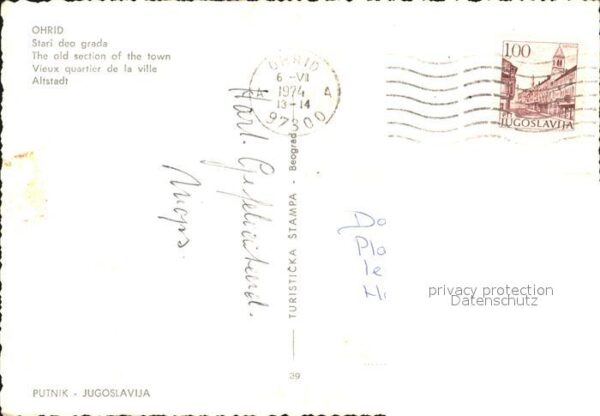 OHRID
Stari deo grada
The old section of the town
Vieux quartier de la ville
Altstadt
OHRID
6 -VI
1974
13-14
A 4
97300
1.00
JUGOSLAVIJA
Hart. Gefeliciteerd.
TURISTIČKA ŠTAMPA - Beograd
Do
Pla
Te
privacy protection
Datenschutz
39
PUTNIK - JUGOSLAVIJA